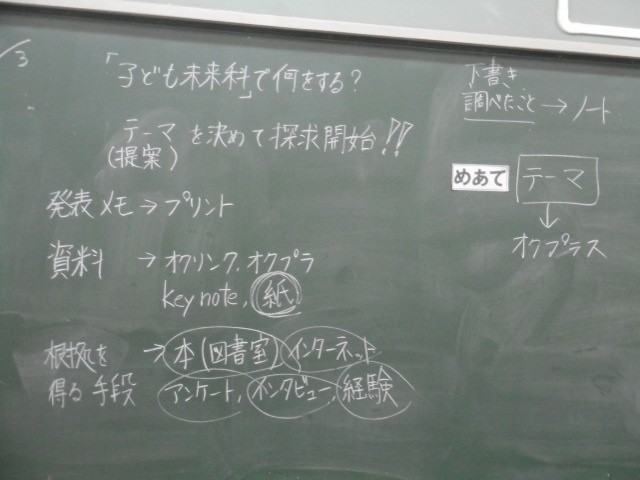 3
「子ども未来科」で何をする?
テーマを決めて探求開始!!
(提案)
発表メモ→プリント
資料 →オクリンク、オクプラ
keynote、紙
根拠を →本(図書室)インターネット
得る手段 アンケート、インタビュー、経験
下書き
調べたこと→ノート
めあて テーマ
↓
オクプラス